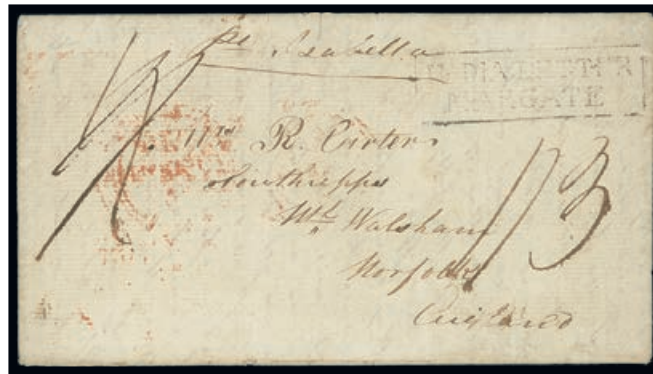 pr Isabella
INDIA LETTER
MARGATE
R. Carter
Southrepps
Nth Walsham
Norfolk
England